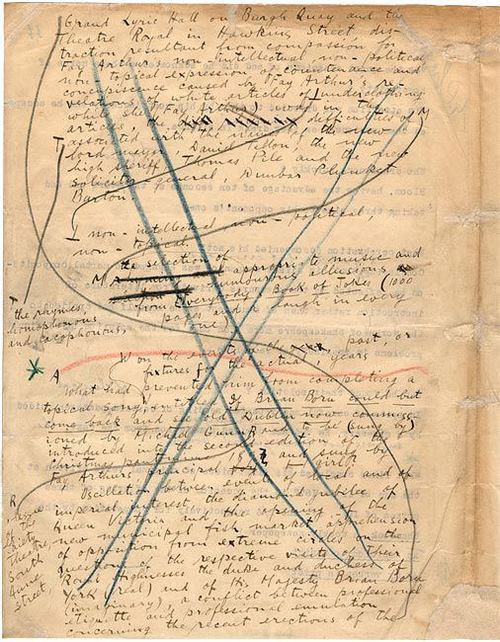 Grand Lyric Hall on Burgh Quay and the
Theatre Royal in Hawkins Street, dis-
traction resultant from compassion for
Fay Arthur's non-intellectual non-political
non-topical expression of countenance and
concupiscence caused by Fay Arthur's re-
velations of white articles of underclothing
while she (Fay Arthur) was in the
articles, the difficulties of
associated with the
lord mayor, Daniel Tallon, the new
high sheriff, Thomas Pile and the new
solicitor general, Dunbar Plunket
Barton.
T
M
I non-intellectual, non-political,
non-topical
the selection of appropriate music and
M humorous allusions
from Everybody's Book of Jokes (1000
pages and a laugh in every
one)
T the rhymes,
homophonous
and cacophonous,
past, or
W on the events of the
fixtures for the actual years
A
What had prevented him from completing a
topical song If Brian Boru could but
come back and see old Dublin now commiss-
ioned by Michael Gunn and to be (sung by)
introduced into second edition of the
Christmas pantomime and sung by
Fay Arthur, principal girl?
Oscillation between events of local and of
imperial interest the diamond jubilee of
Queen Victoria and the opening of the
new municipal fish market, apprehension
of opposition from extreme circles on the
question of the respective visits of Their
Royal Highnesses the duke and duchess of
York (real) and of His Majesty Brian Boru
(imaginary), a conflict between professional
etiquette and professional emulation
concerning the recent erections of the
R
of the
Gaiety
Theatre,
South
King
street,